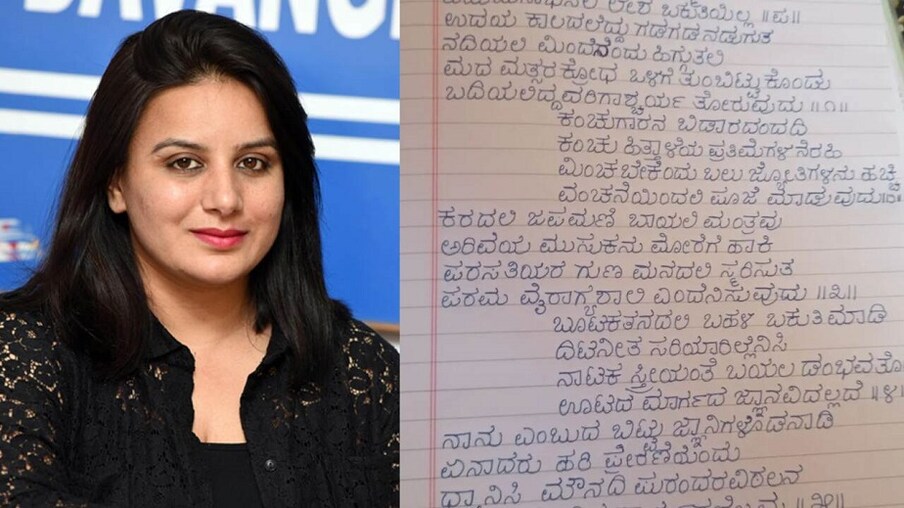 DAVANG
ಲೇಶ ಬಕುತಿಯಿಲ್ಲ ॥ಪ॥
ಉದಯ ಕಾಲದಲೆದ್ದು ಗಡಗಡ ನಡುಗುತ
ನದಿಯಲಿ ಮಿಂದೆನೆಂದು ಹಿಗ್ಗುತಲಿ
ಮದ ಮತ್ಸರ ಕ್ರೋಧ ಒಳಗೆ ತುಂಬಿಟ್ಟುಕೊಂಡು
ಬದಿಯಲಿದ್ದವರಿಗಾಶ್ಚರ್ಯ ತೋರುವುದು ॥೧॥
ಕಂಚುಗಾರನ ಬಿಡಾರದಂದದಿ
ಕಂಚು ಹಿತ್ತಾಳೆಯ ಪ್ರತಿಮೆಗಳ ನೆರಹಿ
ಮಿಂಚಬೇಕೆಂದು ಬಲು ಜ್ಯೋತಿಗಳನು ಹಚ್ಚಿ
ವಂಚನೆಯಿಂದಲಿ ಪೂಜೆ ಮಾಡುವುದು
ಕರದಲಿ ಜಪಮಣಿ ಬಾಯಲಿ ಮಂತ್ರವು
ಅರಿವೆಯ ಮುಸುಕನು ಮೋರೆಗೆ ಹಾಕಿ
ಪರಸತಿಯರ ಗುಣ ಮನದಲಿ ಸ್ಮರಿಸುತ
ಪರಮ ವೈರಾಗ್ಯಶಾಲಿ ಎಂದೆನಿಸುವುದು ॥೩॥
ಬೂಟಕತನದಲಿ ಬಹಳ ಬಕುತಿ ಮಾಡಿ
ದಿಟನೀತ ಸರಿಯಾರಿಲ್ಲೆನಿಸಿ
ನಾಟಕ ಸ್ತ್ರೀಯಂತೆ ಬಯಲ ಡಂಭವತೋ
ಊಟದ ಮಾರ್ಗದ ಜ್ಞಾನವಿದಲ್ಲದೆ ॥೪
ನಾನು ಎಂಬುದ ಬಿಟ್ಟು ಜ್ಞಾನಿಗಳೊಡನಾಡಿ
ಏನಾದರು ಹರಿ ಪ್ರೇರಣೆಯೆಂದು
ಧ್ಯಾನಿಸಿ ಮೌನದಿ ಪುರಂದರವಿಠಲನ
॥೫॥